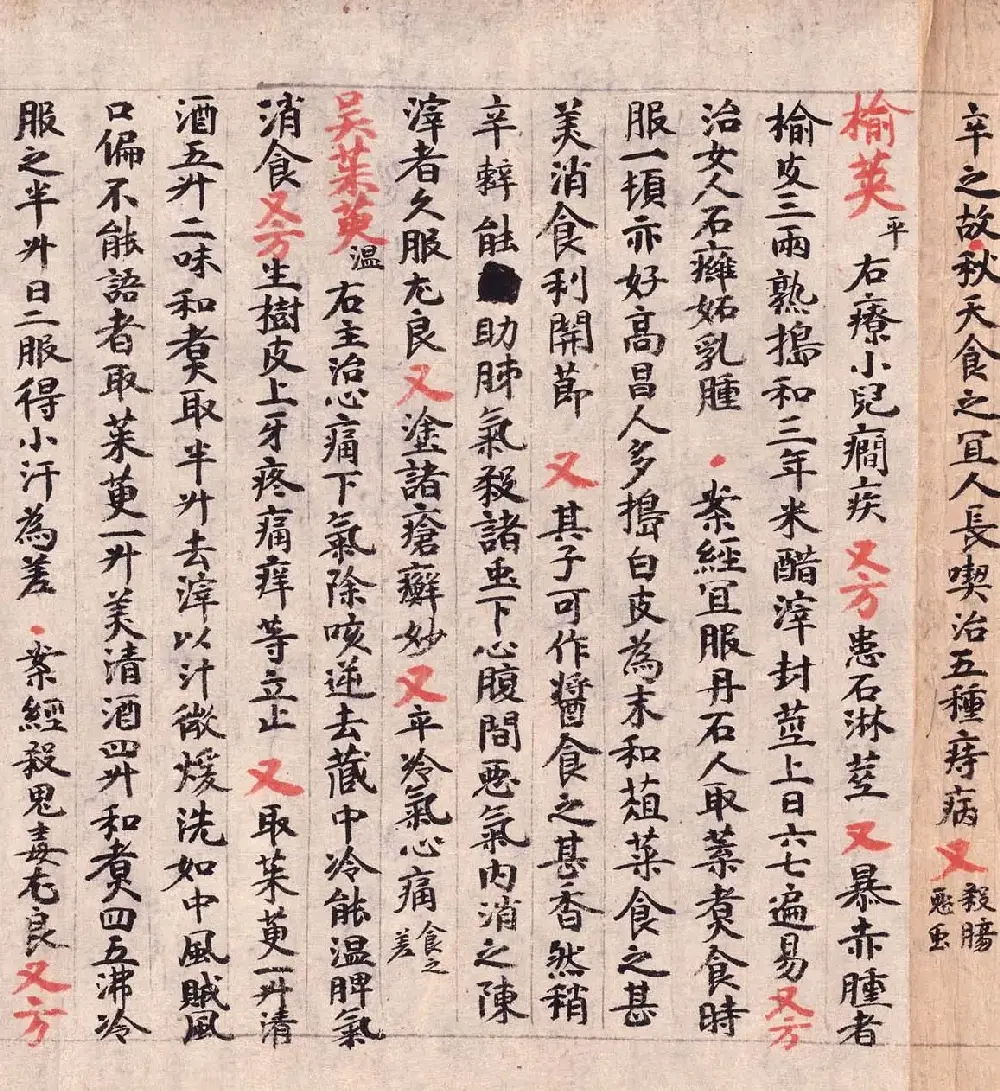 卒之故秋天食之冝人長喫治五種痔病又煞腸惡虫
榆荚平 右療小兒癇疾 又方患石淋莖 又暴赤腫者
榆皮三兩熟搗和三年米醋滓封莖上日六七遍易又方
治女人石癰妬乳腫 案經冝服丹石人取葉煮食時
服一頓亦好高昌人多搗白皮為末和葅菜食之甚
美消食利開節 又其子可作醬食之甚香然稍
辛辢能助肺氣殺諸虫下心腹間惡氣內消之陳
滓者久服尤良又塗諸瘡癬妙又卒冷氣心痛食之差
吴茱萸温 右主治心痛下氣除咳逆去藏中冷能温脾氣
消食又方生樹皮上牙疼痛痒等立止 又取茱萸一升清
酒五升二味和煑取半升去滓以汁微煖洗如中風賊風
口偏不能語者取茱萸一升美清酒四升和煑四五沸冷
服之半升日二服得小汗為差 案經殺鬼毒尤良又方